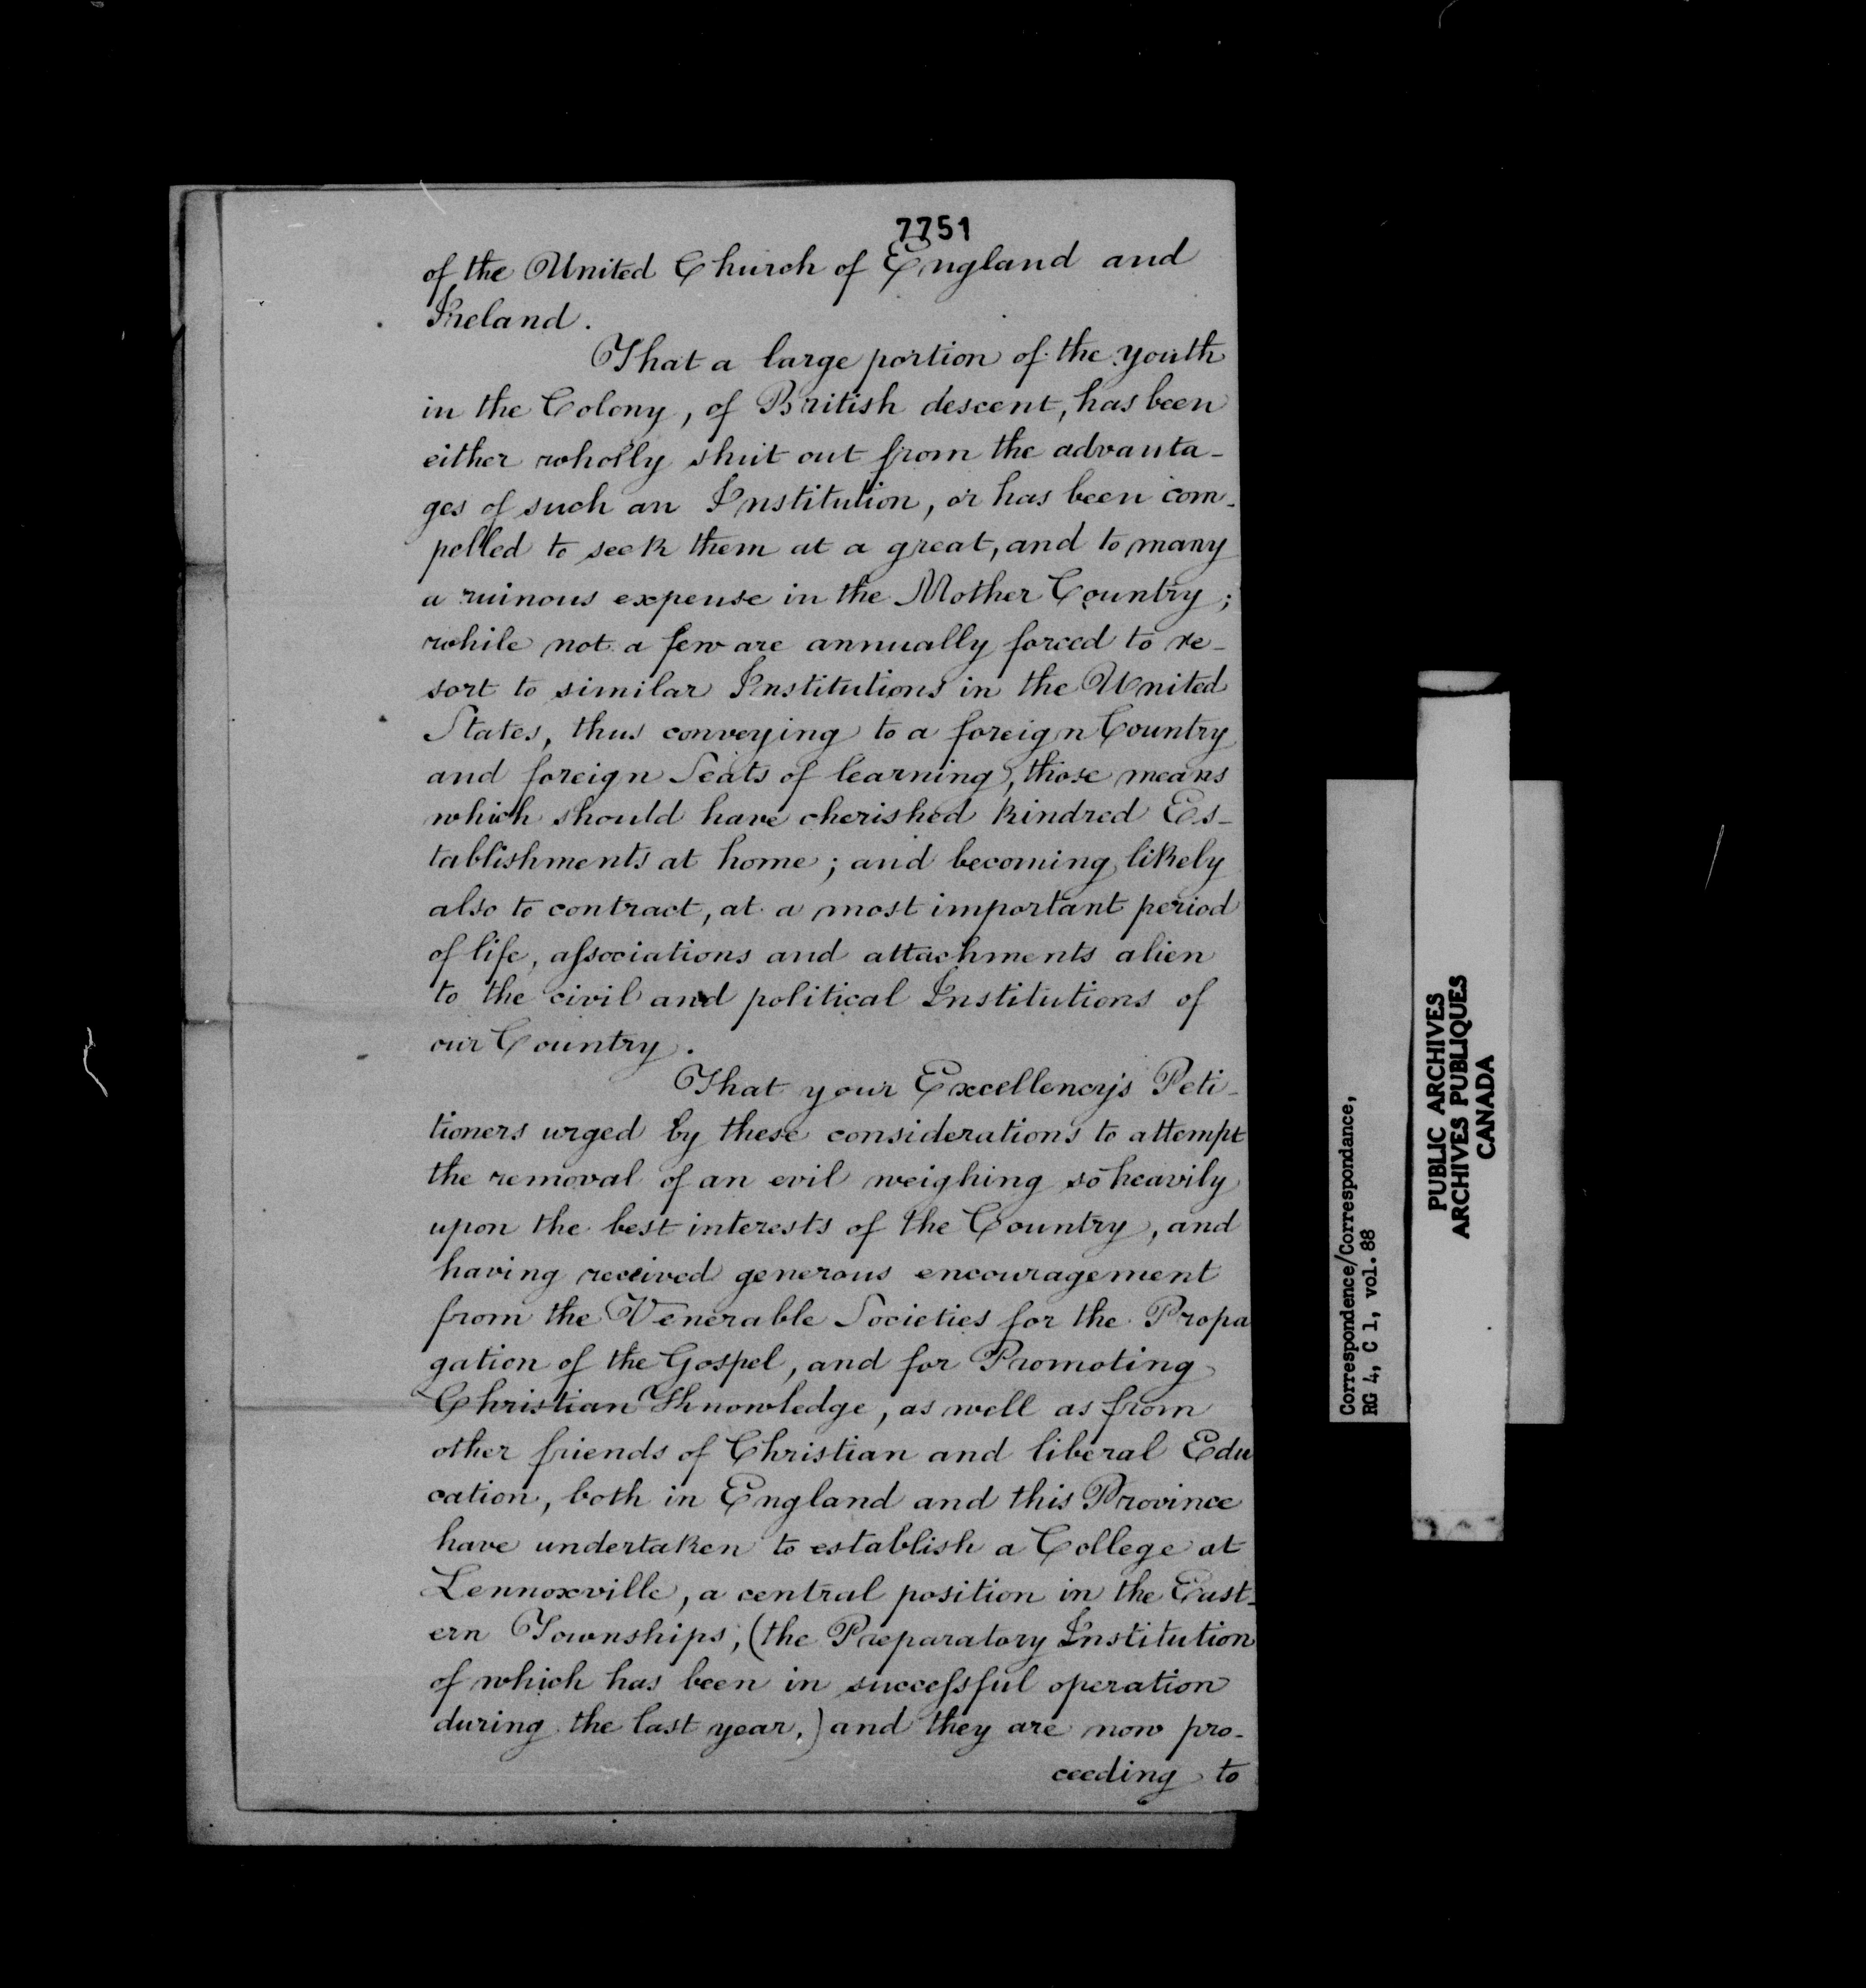 7751
of the United Church of England and
Ireland.
That a large portion of the youth
in the Colony, of British descent, has been
either wholly shut out from the advanta-
ges of such an Institution, or has been com-
pelled to seek them at a great, and to many
a ruinous expense in the Mother Country;
while not a few are annually forced to re-
sort to similar Institutions in the United
States, thus conveying to a foreign Country
and foreign Seats of learning, those means
which should have cherished kindred Es-
tablishments at home; and becoming likely
also to contract, at a most important period
of life, associations and attachments alien
to the civil and political Institutions of
our Country.
That your Excellency's Peti-
tioners urged by these considerations to attempt
the removal of an evil weighing so heavily
upon the best interests of the Country, and
having received generous encouragement
from the Venerable Societies for the Propa
gation of the Gospel, and for Promoting
Christian Knowledge, as well as from
other friends of Christian and liberal Edu
cation, both in England and this Province
have undertaken to establish a College at
Lennoxville, a central position in the East-
ern Townships, (the Preparatory Institution
of which has been in successful operation
during the last year,) and they are now pro-
ceeding to
Correspondence/Correspondance,
RG 4, C 1, vol. 88
PUBLIC ARCHIVES
ARCHIVES PUBLIQUES
CANADA